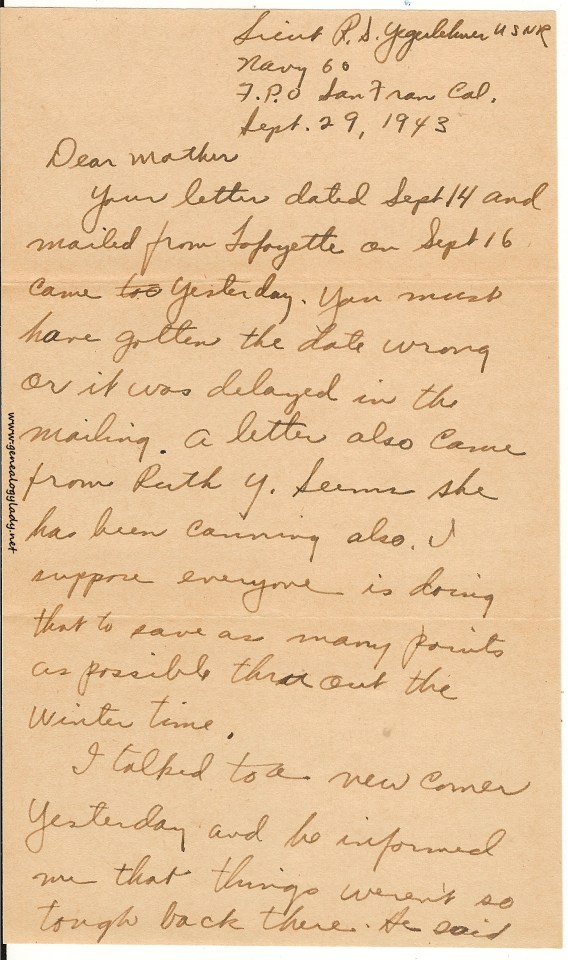 Lieut R. S. Yegerlehner USNR
Navy 60
F.P.O San Fran Cal.
Sept. 29, 1943
Dear Mother
Your letter dated Sept 14 and
mailed from Lafayette on Sept 16
came too Yesterday. You must
have gotten the date wrong
or it was delayed in the
mailing. A letter also came
from Ruth Y. Seems she
has been canning also. I
suppose everyone is doing
that to save as many points
as possible thru out the
Winter time.
I talked to a new comer
Yesterday and he informed
me that things weren't so
tough back there. He said
www.genealogylady.net